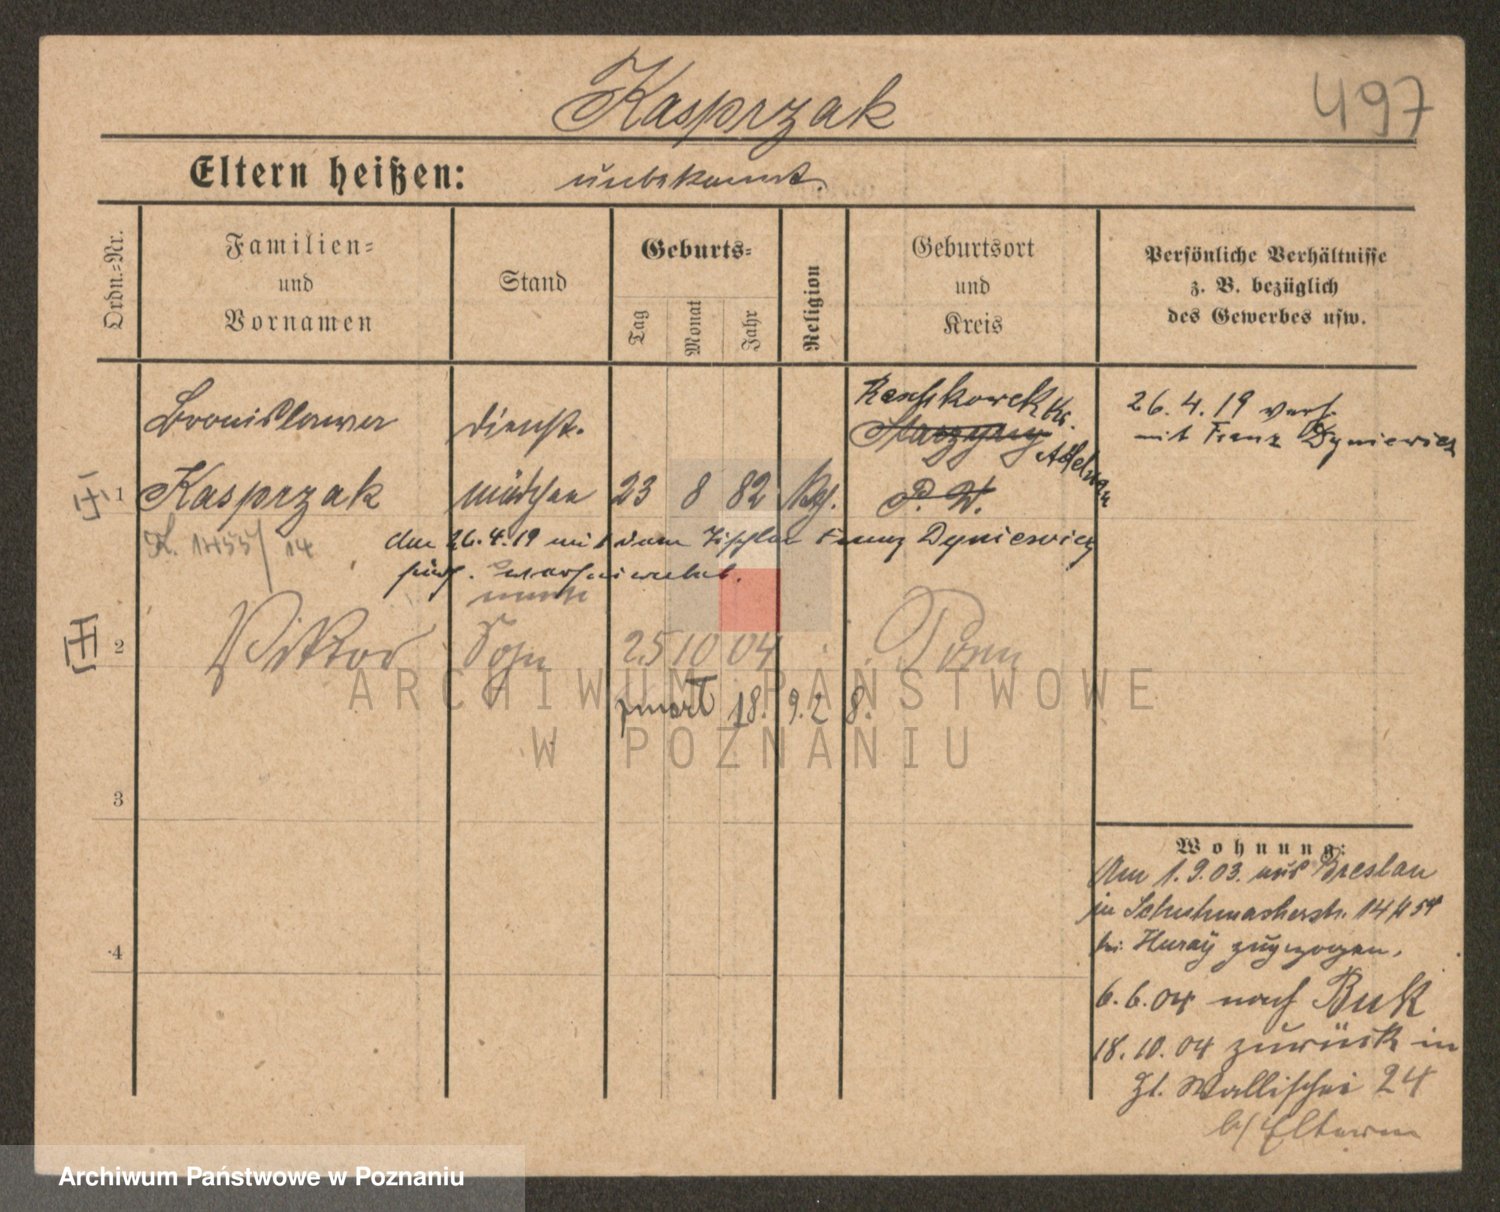 Kasprzak
497
Eltern heißen: unbekannt.
Ordn.=Nr.
Familien=
und
Vornamen
Stand
Geburts=
Tag
Monat
Jahr
Religion
Geburtsort
und
Kreis
Persönliche Verhältnisse
z. B. bezüglich
des Gewerbes usw.
Bronislawa dienst-
Kr.
26. 4. 19 verh.
mit Franz Dyniewicz
Adelnau
1 Kasprzak mädchen 23 8 82 kth. P. W.
K. 1455/14
den 26.4.19 mit dem Franz Dyniewicz
2 Viktor Sohn 25 10 04 Posen
zmarł 18.9.28.
3
4
Wohnung:
Am 1.9.03. aus Breslau
in Schuhmacherstr. 14
bei zugezogen.
6.6.04 nach Buk
18.10.04 zurück in
Wallischei 24
b/ Eltern
ARCHIWUM PAŃSTWOWE
W POZNANIU
Archiwum Państwowe w Poznaniu